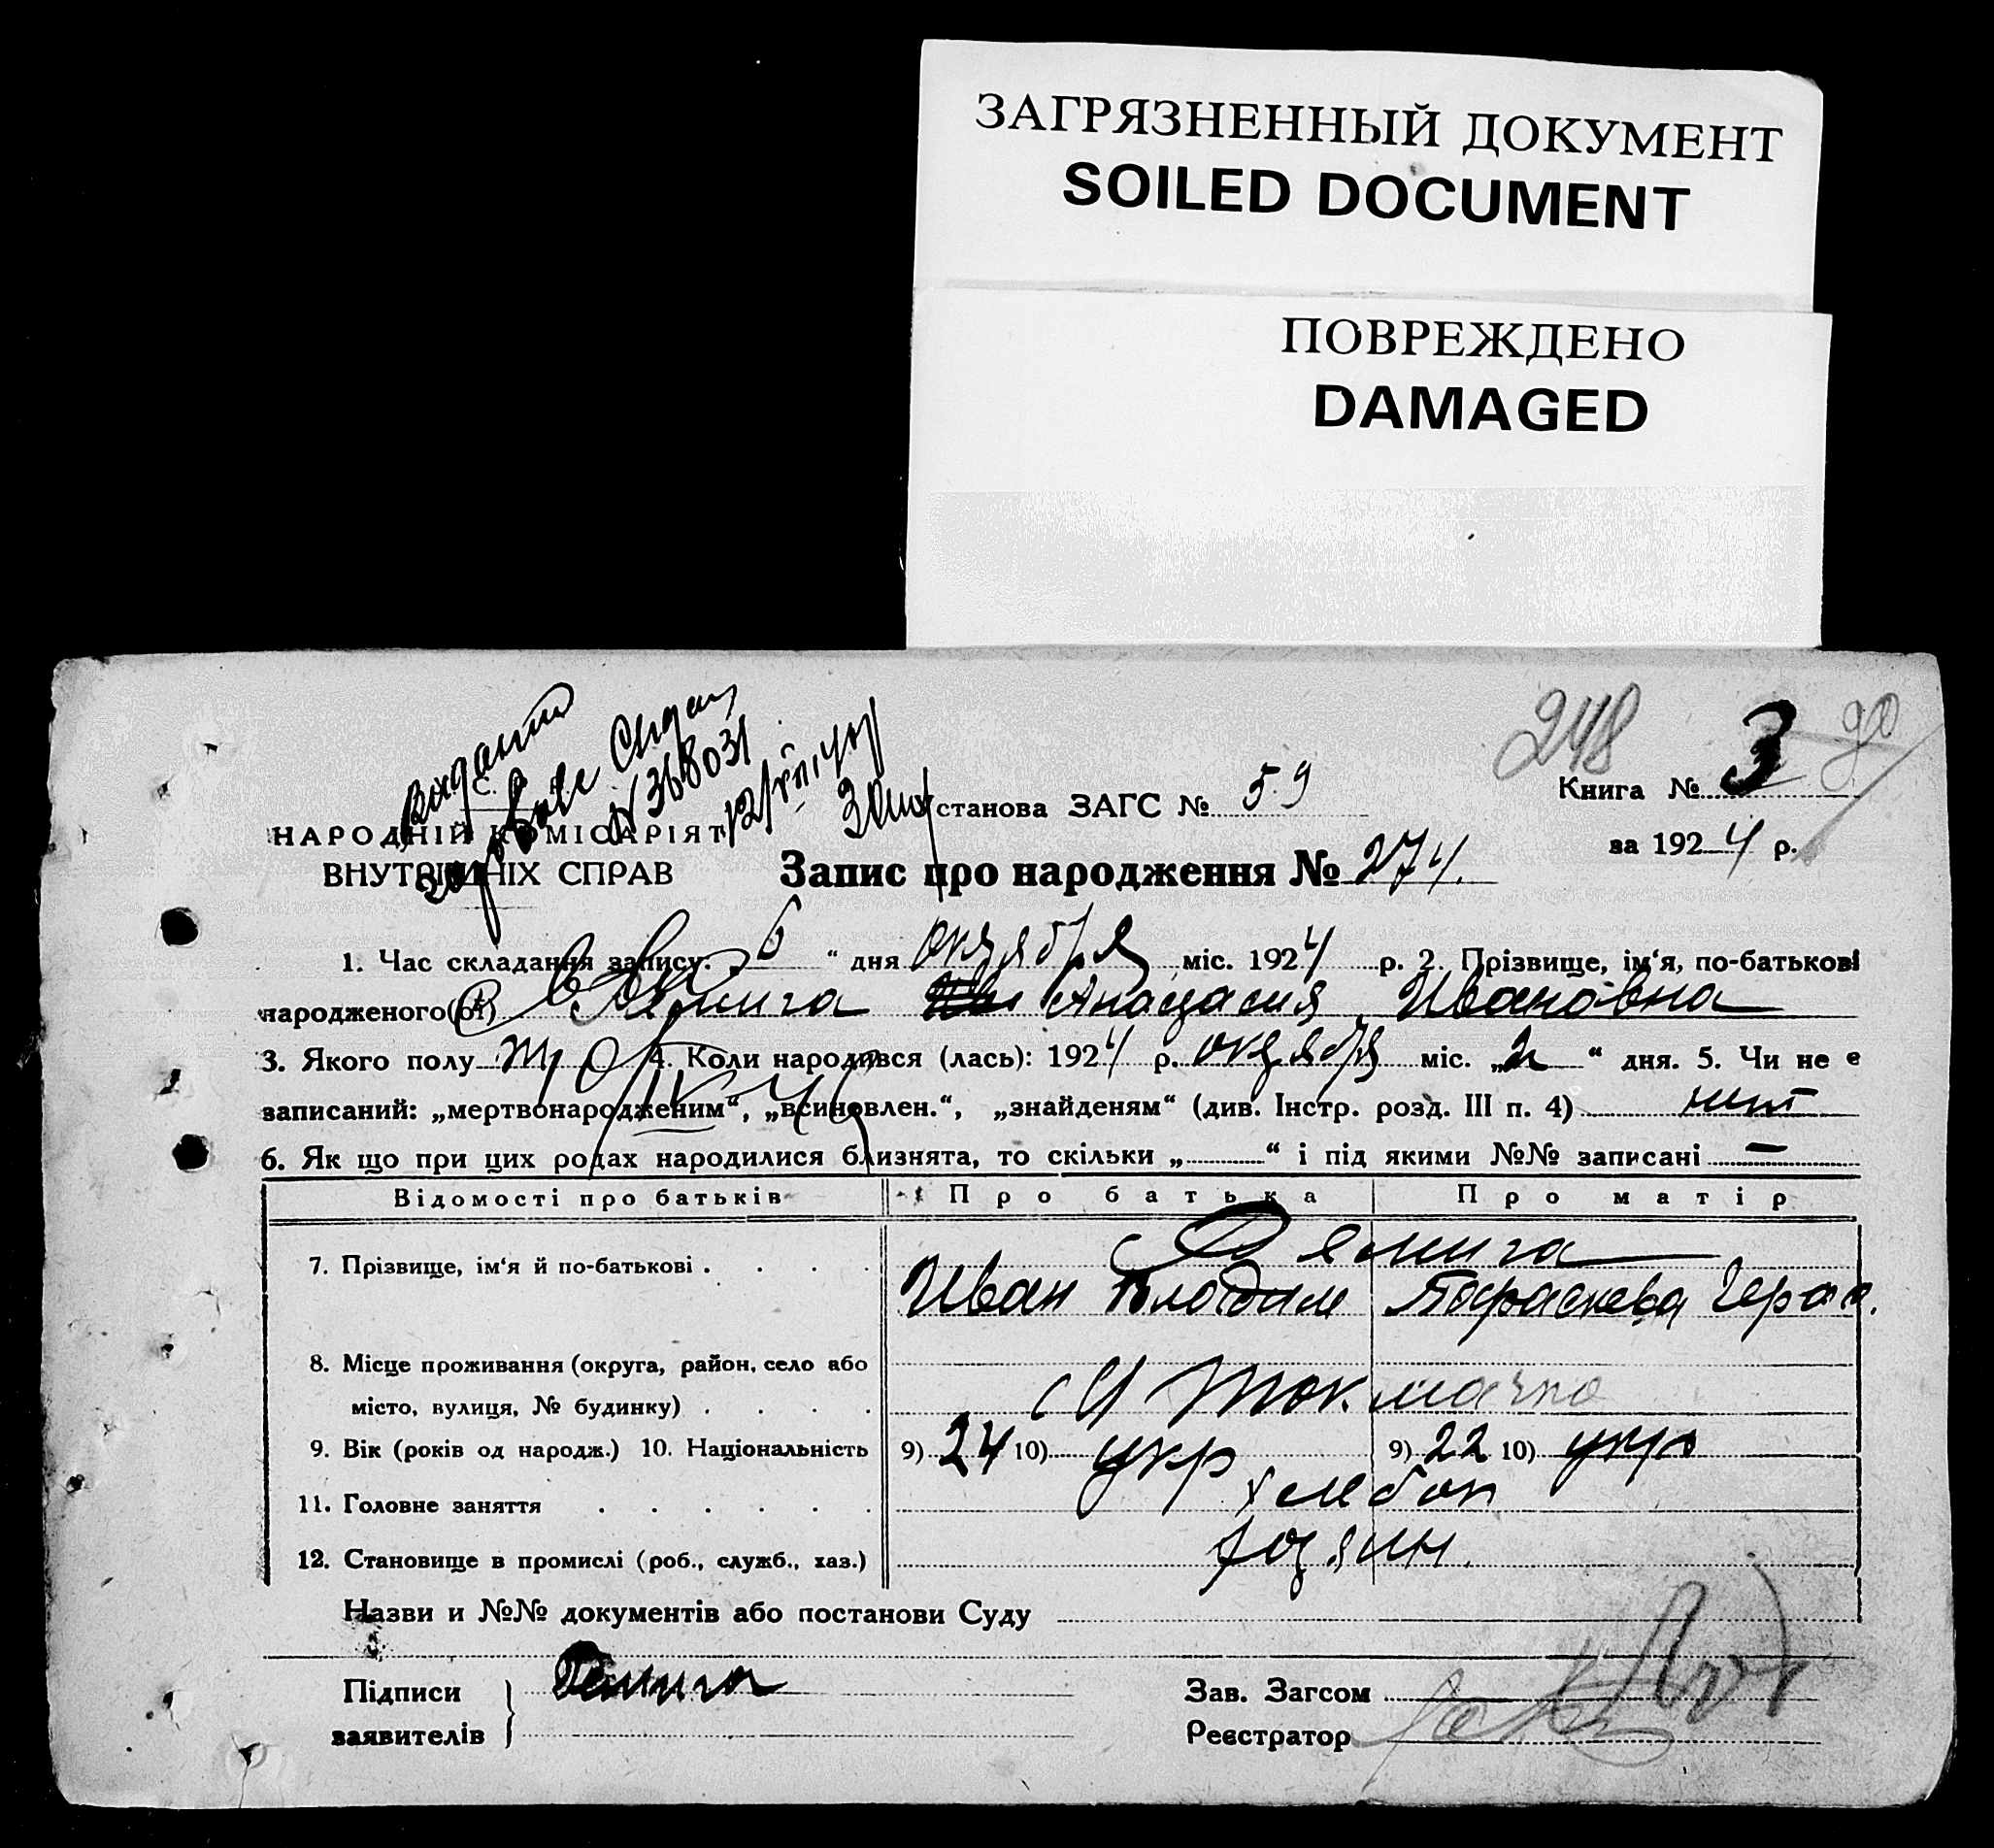 ЗАГРЯЗНЕННЫЙ ДОКУМЕНТ
SOILED DOCUMENT
ПОВРЕЖДЕНО
DAMAGED
248 3 90
N 368031
Книга №
станова ЗАГС № 59
НАРОДНІЙ КОМІСАРІЯТ
ВНУТРІШНІХ СПРАВ
за 1924 р.
Запис про народження № 274.
1. Час складання запису. 6 “ дня октября міс. 1924 р. 2. Прізвище, ім‘я, по-батькові
народженого(ої) Анастасия Ивановна
3. Якого полу 4. Коли народився (лась): 1924 р. октября міс. „2 “ дня. 5. Чи не є
записаний: „мертвонародженим“, „всиновлен.“, „знайденям“ (див. Інстр. розд. III п. 4) нет
6. Як що при цих родах народилися близнята, то скільки „ “ і під якими №№ записані —
Відомості про батьків Про батька Про матір
7. Прізвище, ім‘я й по-батькові
Иван Владим Параскева Герас.
8. Місце проживання (округа, район, село або
місто, вулиця, № будинку) Токмачка
9. Вік (років од народж.) 10. Національність 9) 24 10) укр 9) 22 10) укр
11. Головне заняття хлебоп
12. Становище в промислі (роб., служб., хаз.) хозяин.
Назви и №№ документів або постанови Суду
Підписи
заявителів
Зав. Загсом
Реєстратор